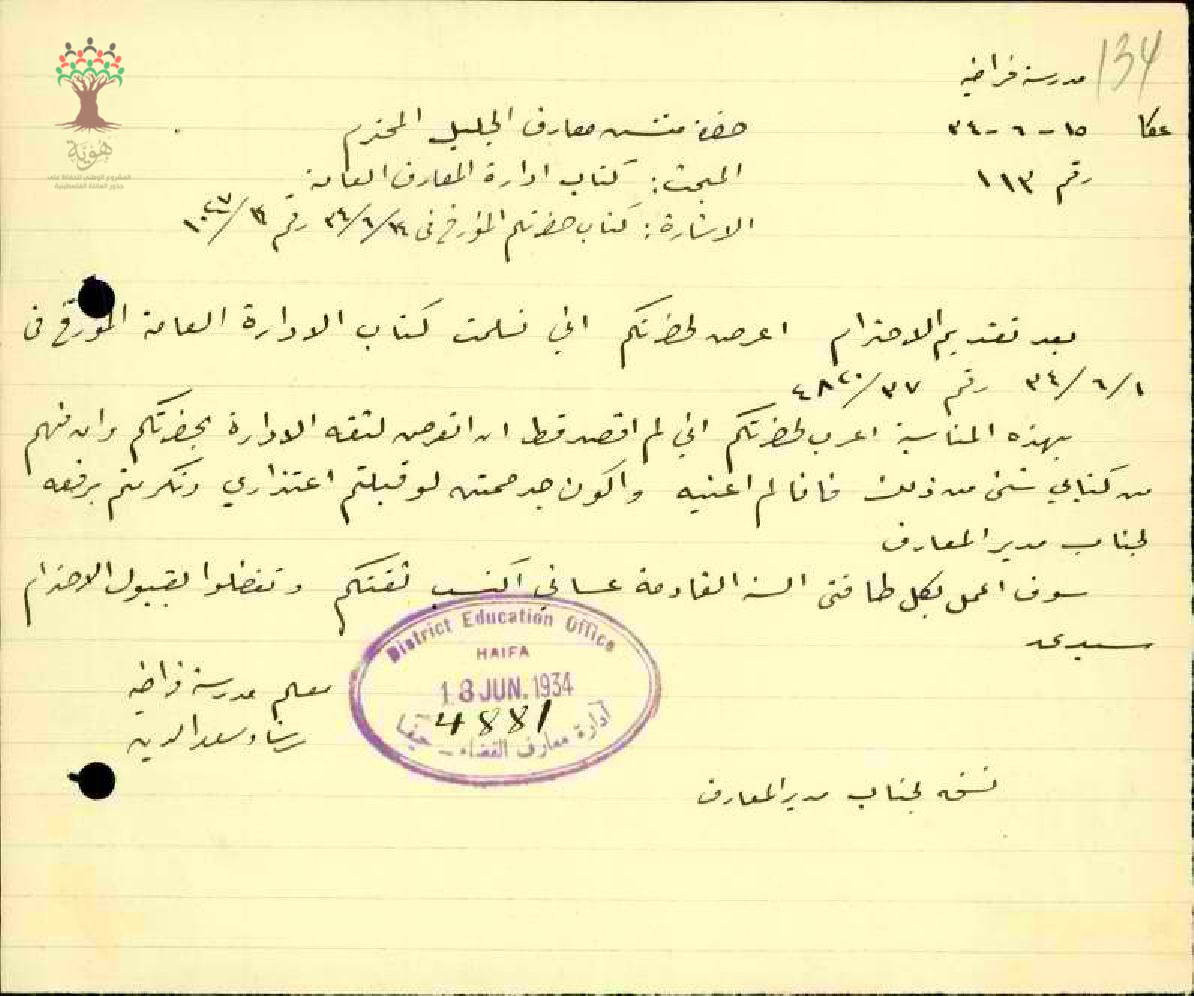 134
مدرسة فراضيه
عكا ١٥-٦-٣٤
رقم ١١٣
حضرة مفتش معارف الجليل المحترم
المبحث: كتاب ادارة المعارف العامة
الاشارة: كتاب حضرتكم المؤرخ في ٣٤/٦/١٤ رقم
بعد تقديم الاحترام اعرض لحضرتكم اني تسلمت كتاب الادارة العامة المؤرخ في
٣٤/٦/١ رقم ٣٧/٤٨٢٠
بهذه المناسبة اعرب لحضرتكم اني لم اقصد قط ان اتعرض لثقة الادارة بحضرتكم وان فهم
من كتابي شئ من ذلك فانا لم اعنيه واكون جد ممتن لو قبلتم اعتذاري وتكرمتم برفعه
لجناب مدير المعارف
سوف اعمل بكل طاقتي السنة القادمة عساني اكتسب ثقتكم وتفضلوا بقبول الاحترام
سيدي
معلم مدرسة فراضيه
رشاد سعد الدين
District Education Office
HAIFA
18 JUN. 1934
4881
ادارة معارف القضاء - حيفا
نسخه لجناب مدير المعارف
هوية
المشروع الوطني للحفاظ على
جذور العائلة الفلسطينية